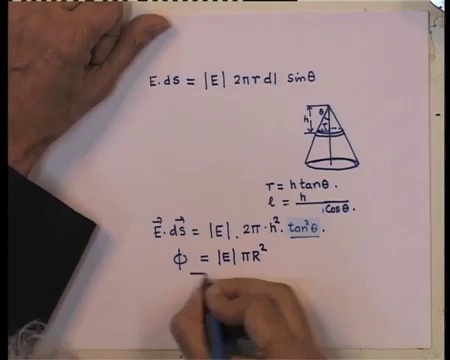 E. ds = |E| 2πrdl sinθ
θ
h
r
r = h tanθ.
l = h / Cosθ.
E⃗. ds⃗ = |E|. 2π·h². tan²θ.
ϕ = |E| πR²